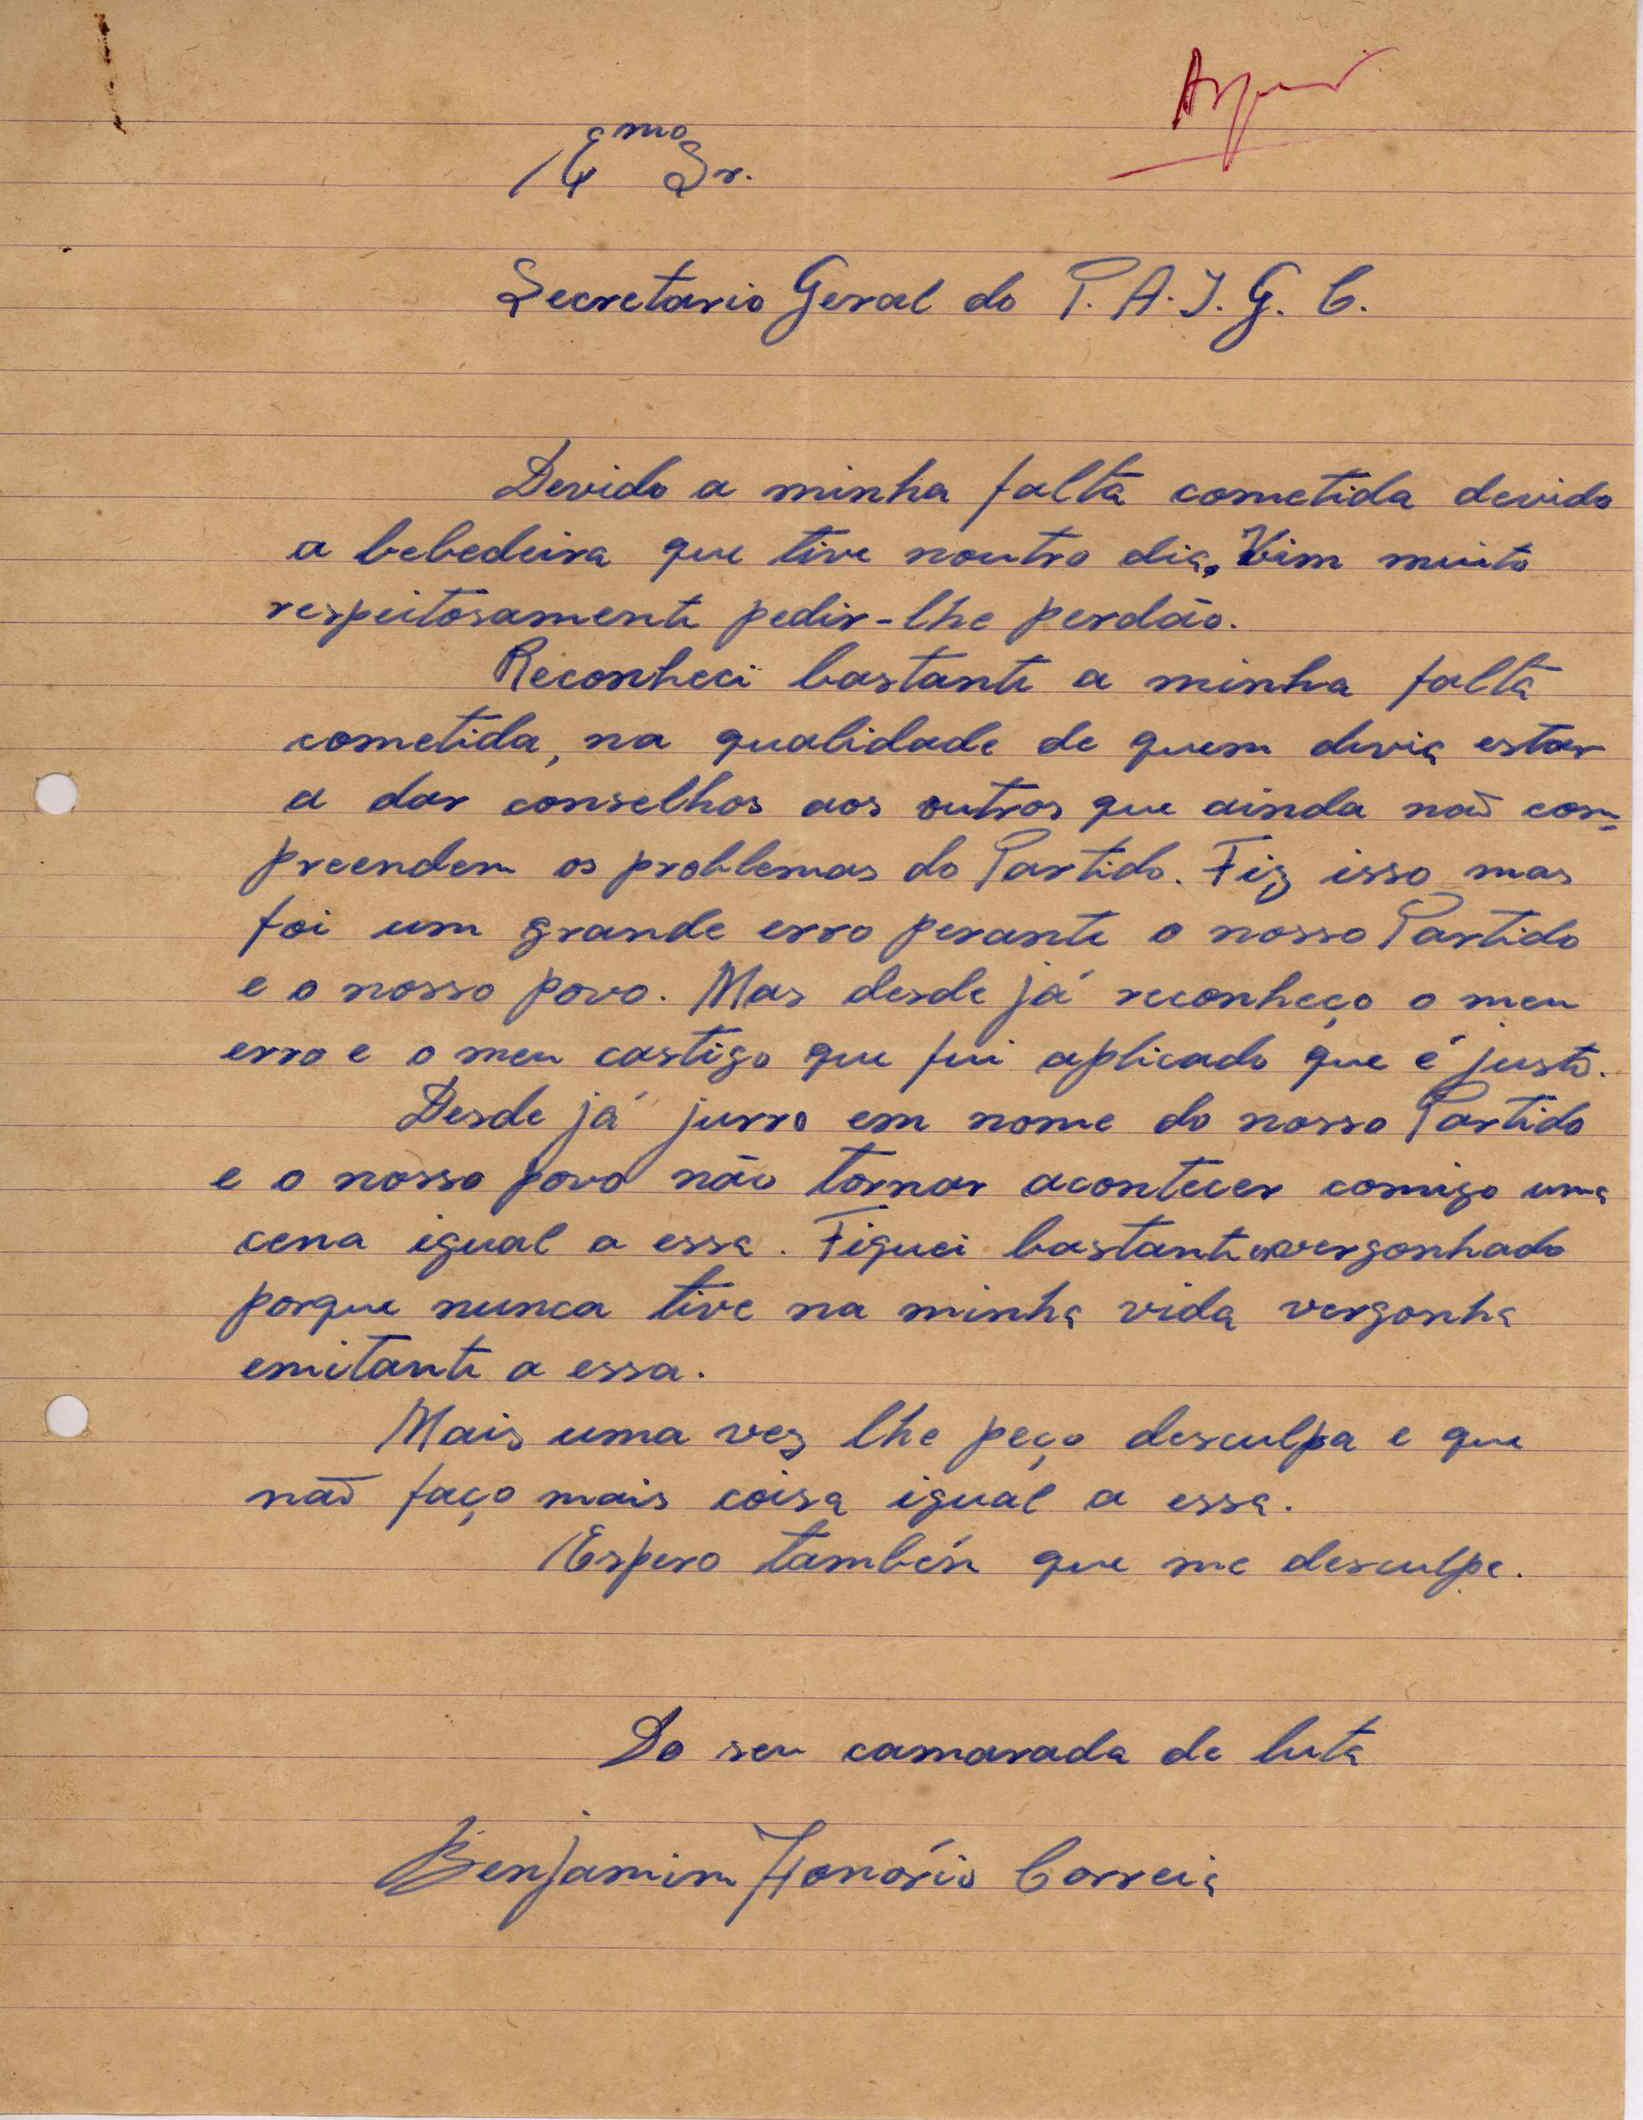 Sr.
Secretario Geral do P. A. I. G. C.
Devido a minha falta cometida devido
a bebedeira que tive noutro dia, Vim muito
respeitosamente pedir-lhe perdão.
Reconheci bastante a minha falta
cometida, na qualidade de quem devia estar
a dar conselhos aos outros que ainda não com-
preendem os problemas do Partido. Fiz isso mas
foi um grande erro perante o nosso Partido
e o nosso povo. Mas desde já reconheço o meu
erro e o meu castigo que fui aplicado que é justo.
Desde já jurro em nome do nosso Partido
e o nosso povo não tornar acontecer comigo uma
cena igual a essa. Fiquei bastante envergonhado
porque nunca tive na minha vida vergonha
emitante a essa.
Mais uma vez lhe peço desculpa e que
não faço mais coisa igual a essa.
Espero também que me desculpe.
Do seu camarada de luta
Benjamim Honório Correia